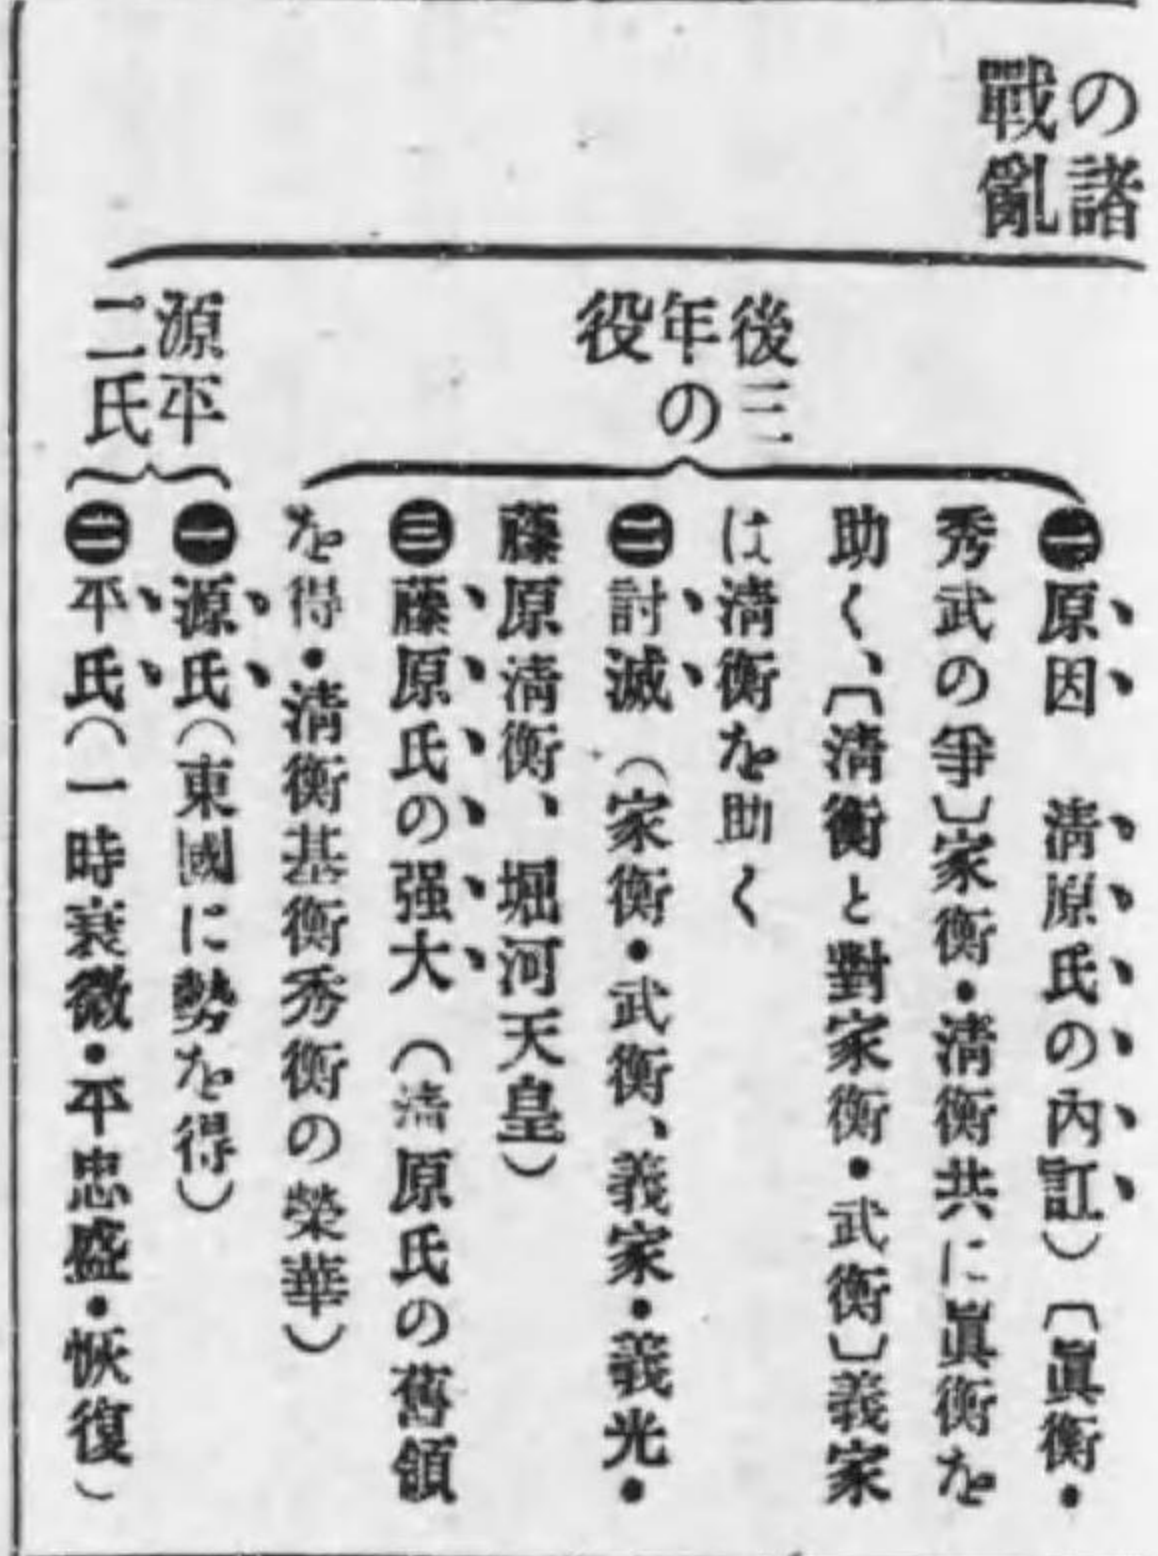 の諸
戰亂
後三
年の
役
㊀原因　淸原氏の內訌)〔眞衡・
秀武の爭〕家衡・淸衡共に眞衡を
助く、〔淸衡と對家衡・武衡〕義家
は淸衡を助く
㊁討滅(家衡・武衡、義家・義光・
藤原淸衡、堀河天皇)
㊂藤原氏の强大(淸原氏の舊領
を得・淸衡基衡秀衡の榮華)
源平
二氏
㊀源氏(東國に勢を得)
㊁平氏(一時衰微・平忠盛・恢復)